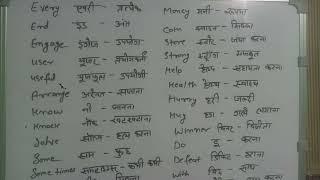 Every एवरी प्रत्येक
End - इंड - अंत
Engage इंगेज -
User यूजर -
Useful यूजफुल - उपयोगी
Arrange अरेंज -
Know नो - जानना
Knock नॉक - खटखटाना
Solve सॉल्व - हल करना
Some सम - कुछ
Some times समटाइम्स - कभी कभी
Money मनी -
Coin क्वाइन - सिक्का
Store स्टोर - जमा करना
Strong स्ट्रांग - मजबूत
Help हेल्प - सहायता करना
Health हेल्थ - स्वास्थ्य
Hurry हरी - जल्दी
Hug हग - गले लगाना
Winner विनर - विजेता
Do डू - करना
Defeat डिफीट - हराना